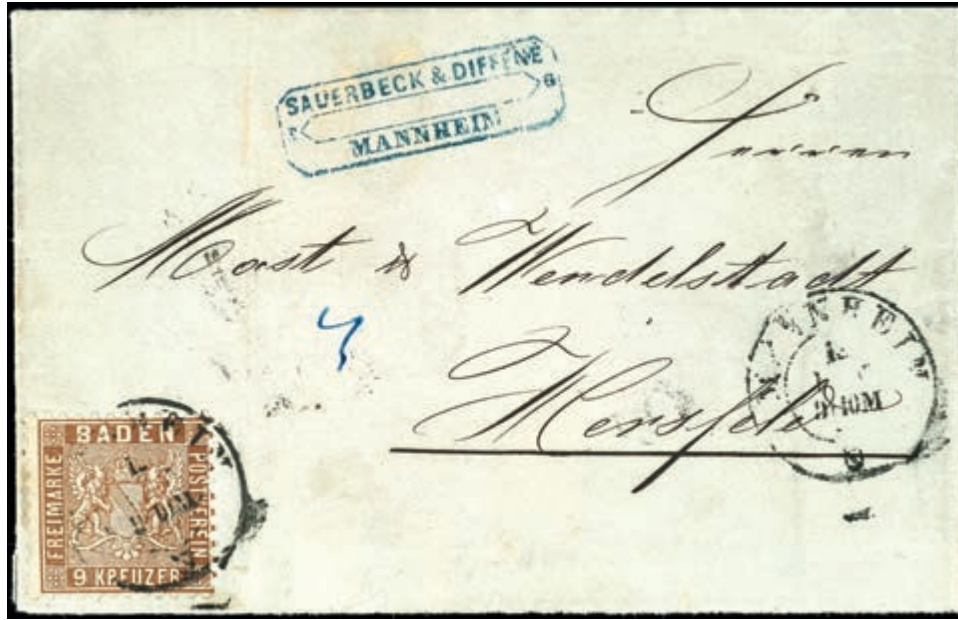 SAUERBECK & DIFFENÉ
MANNHEIM
Herren
Morst & Wendelstadt
Hersfeld
MANNHEIM
BADEN
FREIMARKE
POSTVEREIN
9 KREUZER